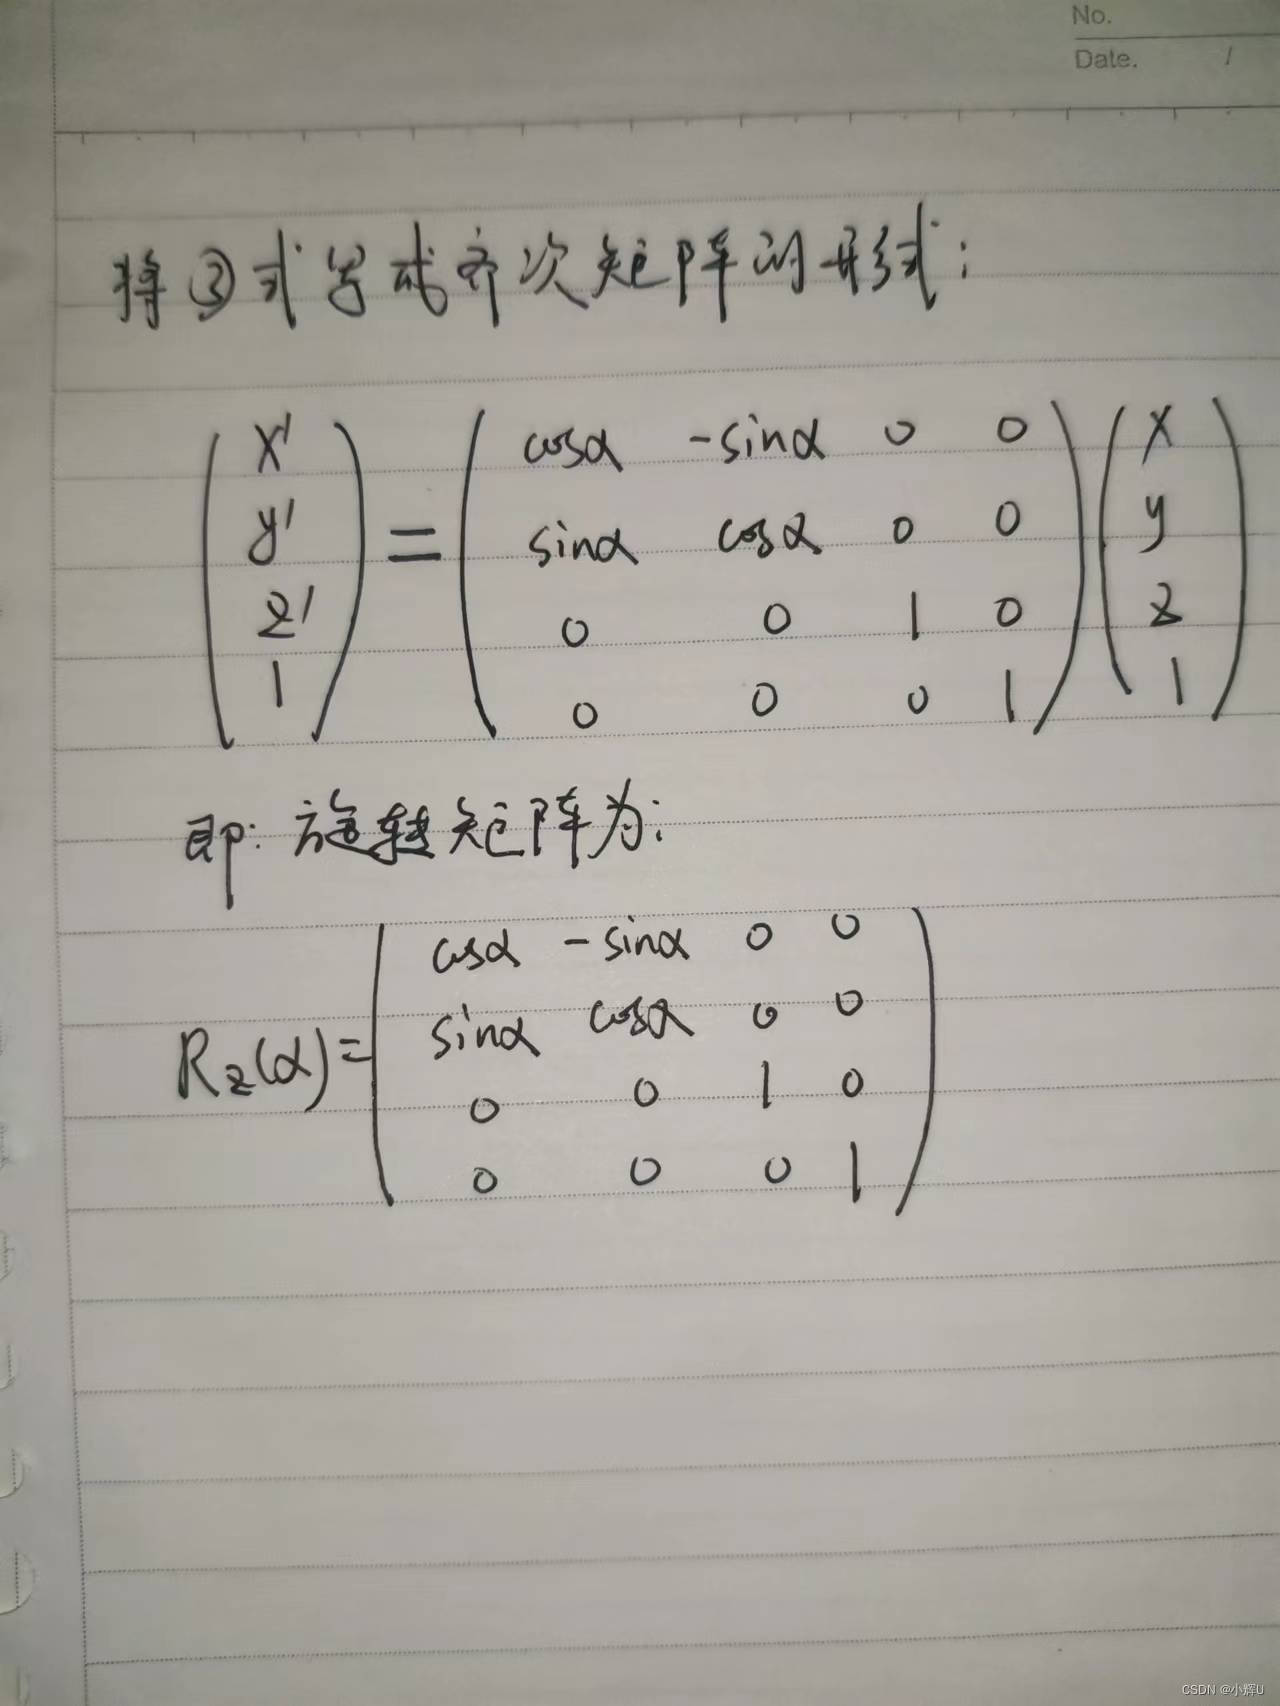 No.
Date. /
将③式写成齐次矩阵的形式:
x' cosα -sinα 0 0 x
y' = sinα cosα 0 0 y
z' 0 0 1 0 z
1 0 0 0 1 1
即: 旋转矩阵为:
cosα -sinα 0 0
sinα cosα 0 0
Rz(α)=
0 0 1 0
0 0 0 1
CSDN @小辉U